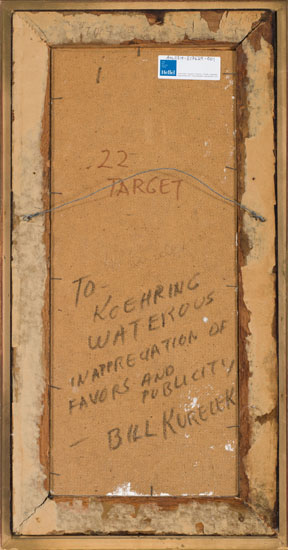 Heffel
22
TARGET
TO
KOEHRING
WATEROUS
IN APPRECIATION OF
FAVORS AND
PUBLICITY
— BILL KURELEK